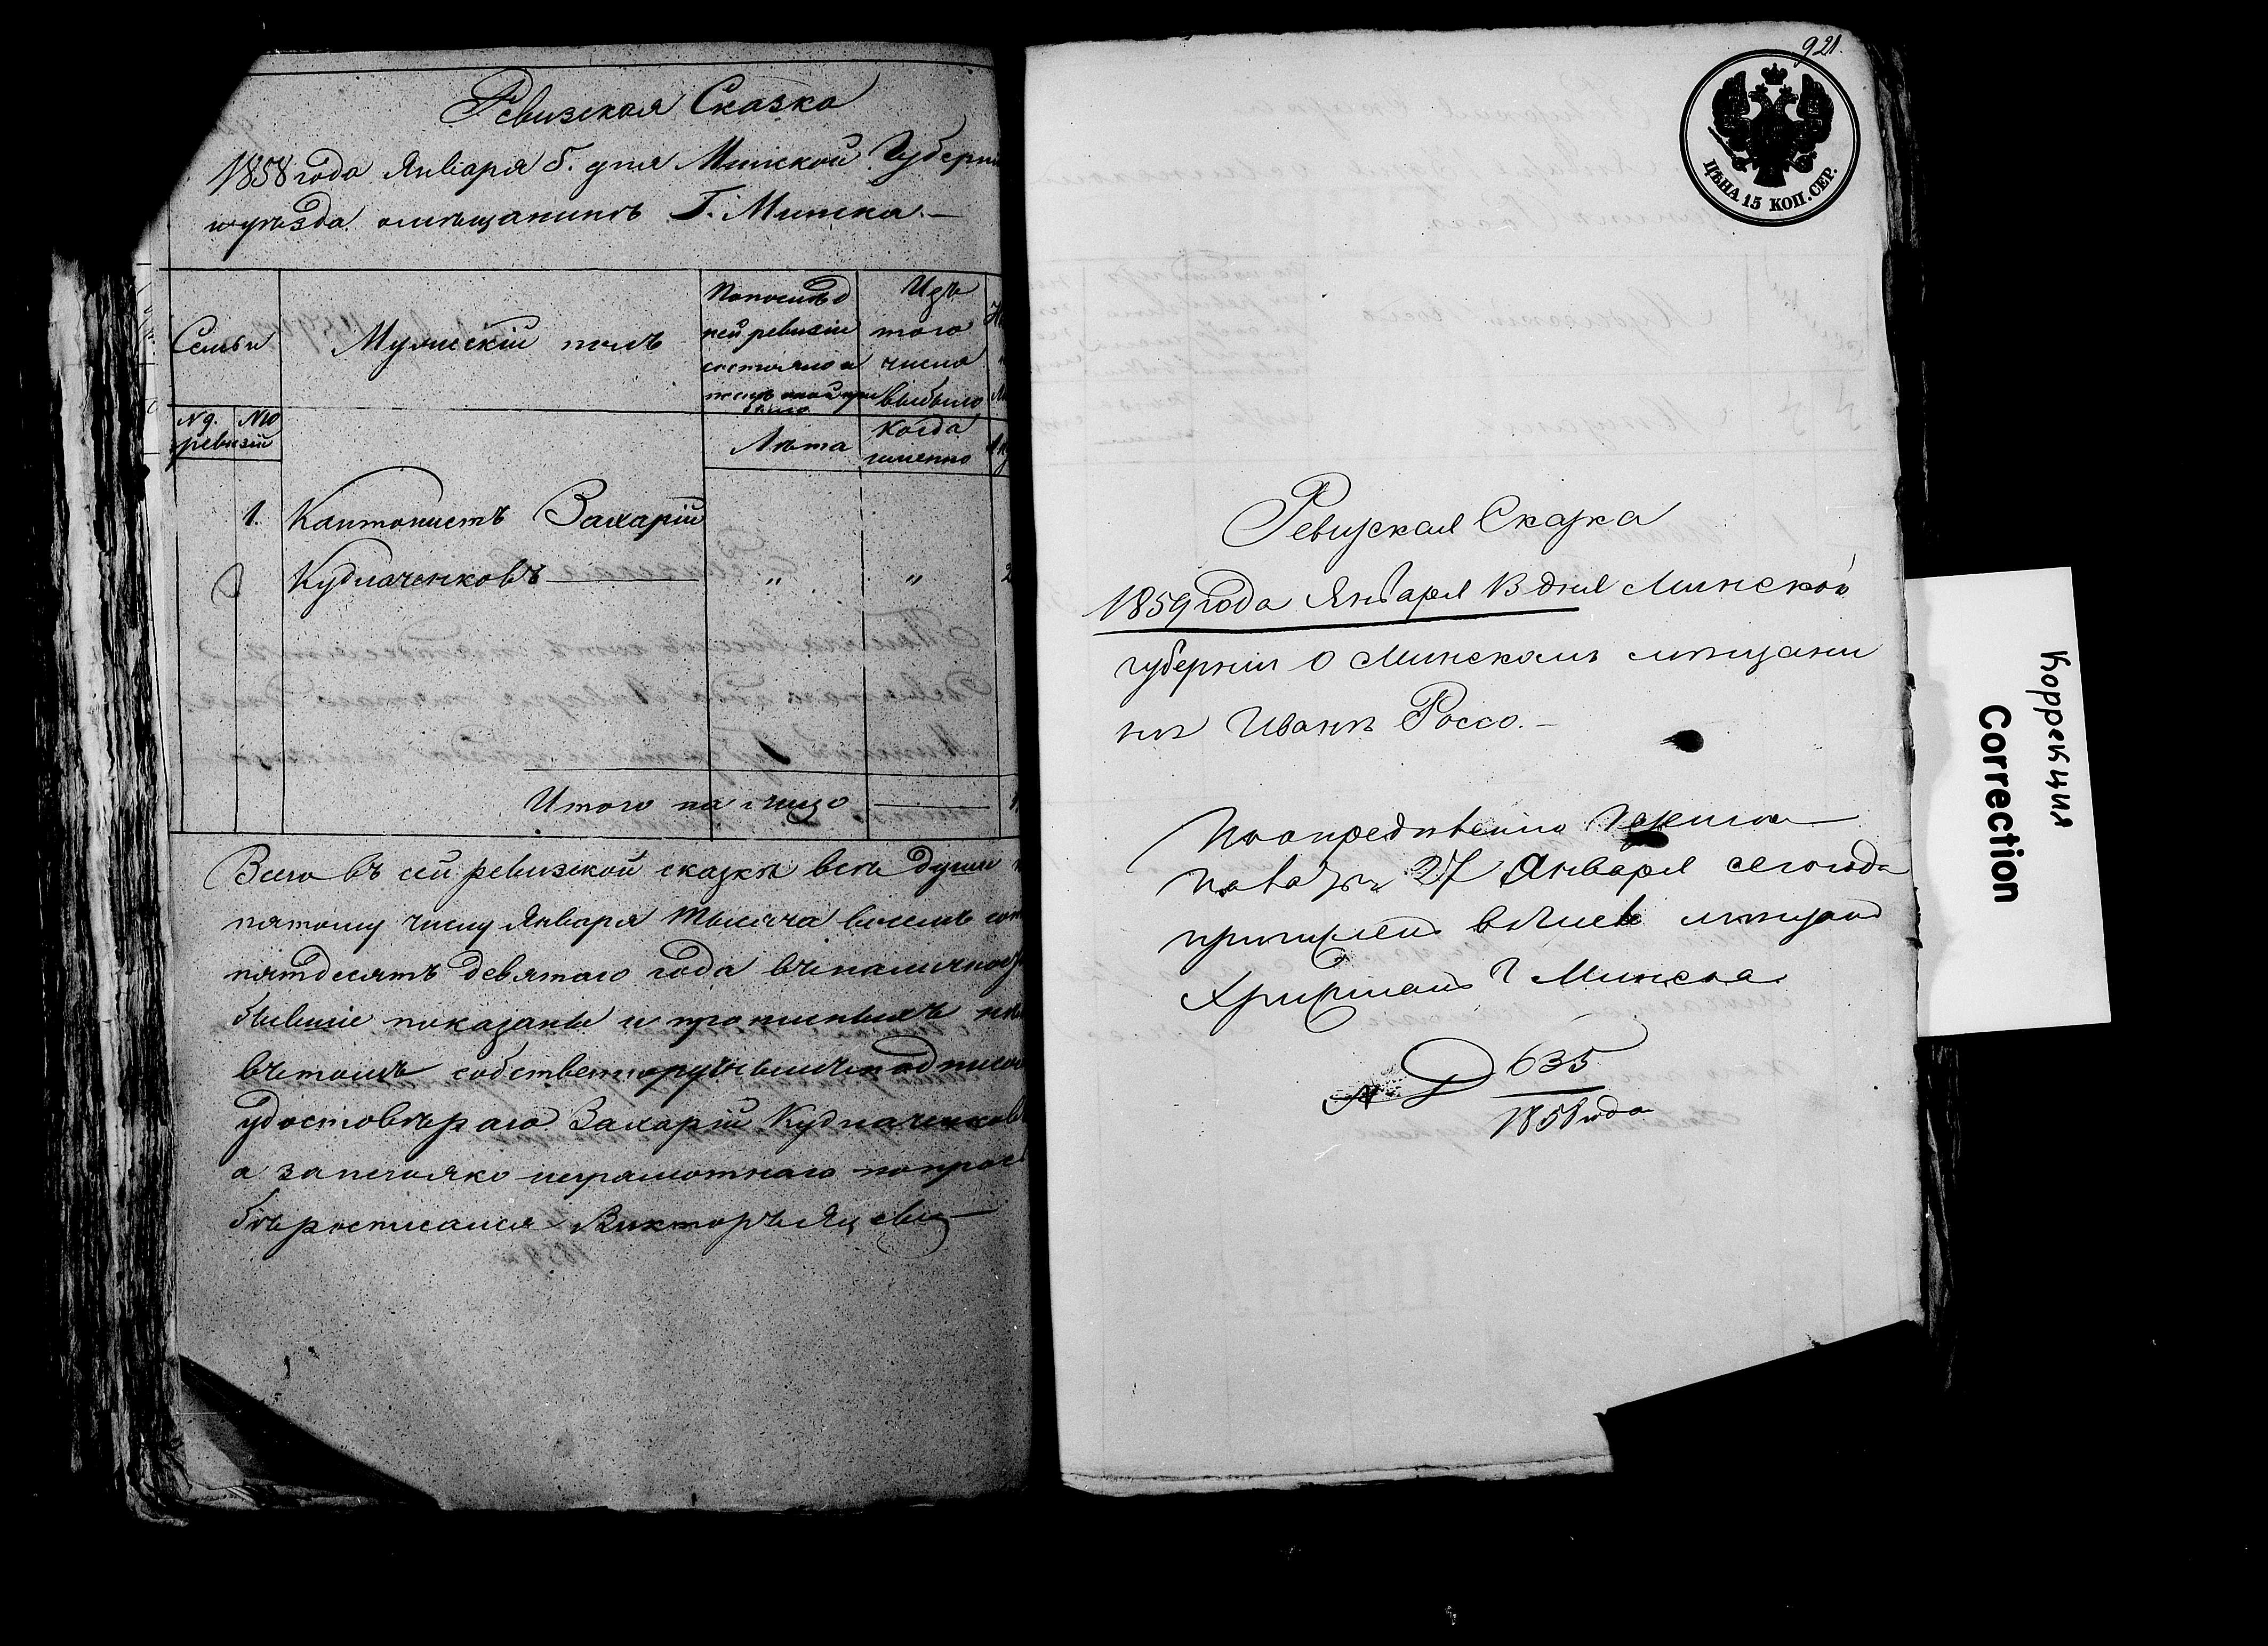 Ревизская Сказка
1858 года Января 5. дня Минской Губерн
и уезда омещанинѣ Г. Минска.—
Семьи
Мужескій полъ
Попослѣд
ней ревизіи
состояло и
послѣ оной при
было
Изъ
того
числа
выбыло
№ 9. № 10
ревизіи
Лѣта
Когда
именно
1. Кантонистъ Захарій
Кудлаченковъ — „ „
Итого на лицо — 1
Всего въ сей ревизской сказкѣ всѣ души
пятому числу Января Тысяча восемь сот
пятдесятъ девятаго года въ налично
бывшіе показаны и прописныхъ нѣ
вътомъ собственноручнымъ подписо
удостовѣраю Захарій Кудлаченковъ
а занего яко неграмотнаго попрос
бѣ росписался Викторъ Яцевич
921
ЦѢНА 15 КОП. СЕР.
Ревизская Сказка
1859 года Января 13 дня Минской
губерніи О Минскомъ мѣщани
нѣ Иванѣ Россо.—
По опредѣленію
27 Января сего года
причислен мѣщан
Христиан г Минска
№ 635
1858 года
Коррекция
Correction